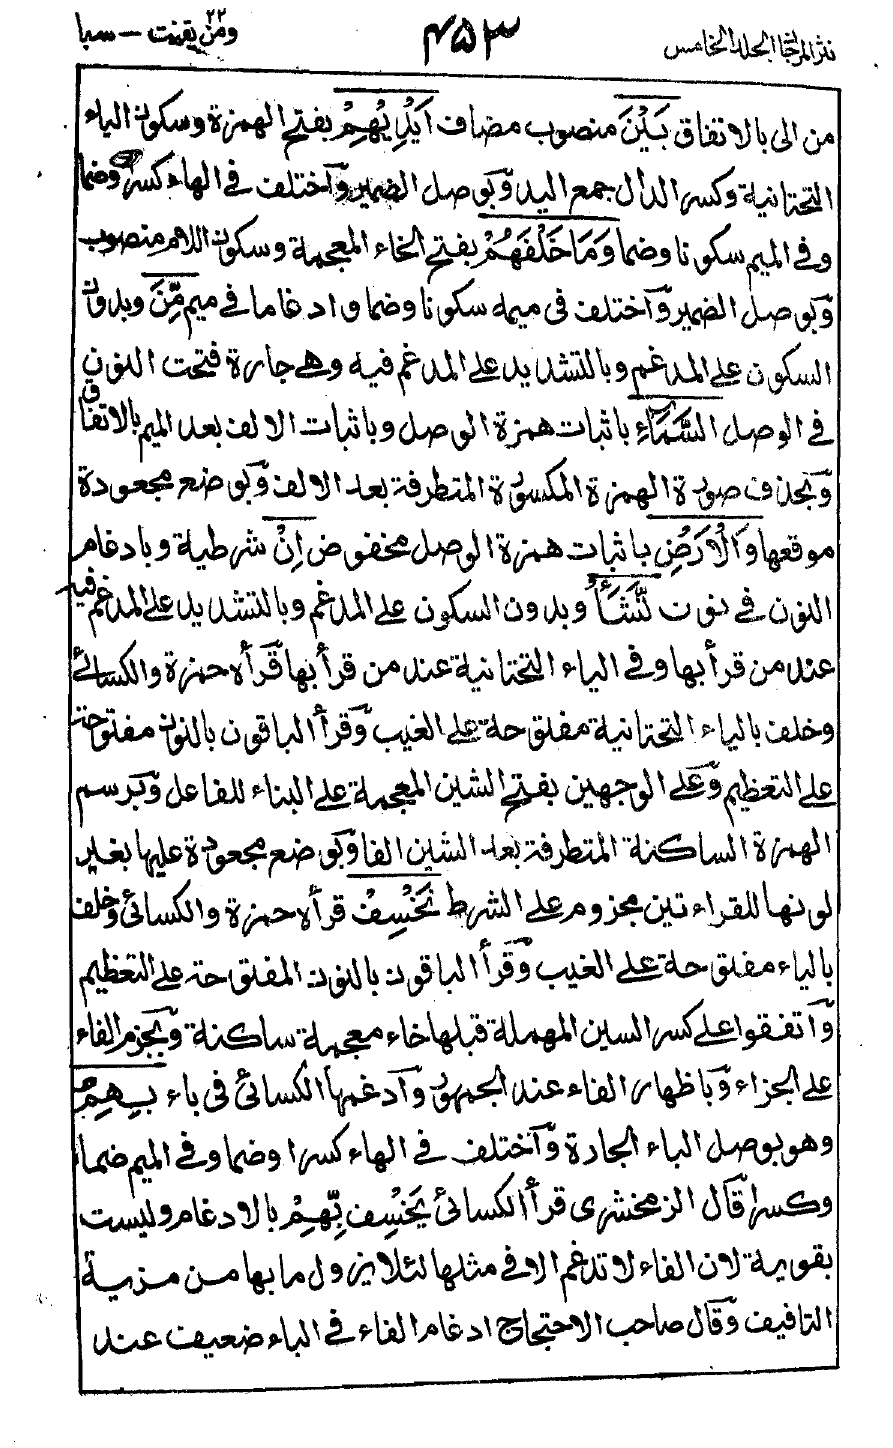 نثر المرجان المجلد الخامس
٤٥٣
ومن يقنت ٢٢ — سبا
من الى بالاتفاق بَيْنَ منصوب مضاف اَيْدِيْهِمْ بفتح الهمزة وسكون الياء
التحتانية وكسر الدال جمع اليد وبوصل الضمير واختلف في الهاء كسرا وضما
وفي الميم سكونا وضما وَمَا خَلْفَهُمْ بفتح الخاء المعجمة وسكون اللام منصوب
وبوصل الضمير واختلف في ميمه سكونا وضما وادغاما في ميم مِّنَ وبدون
السكون على المدغم وبالتشديد على المدغم فيه وهي جارة فتحت النون
في الوصل السَّمَآءِ باثبات همزة الوصل وباثبات الالف بعد الميم بالاتفاق
وبحذف صورة الهمزة المكسورة المتطرفة بعد الالف وبوضع مجعودة
موقعها وَالْاَرْضِ باثبات همزة الوصل مخفوض اِنْ شرطية وبادغام
النون في نون نَّشَأْ وبدون السكون على المدغم وبالتشديد على المدغم فيه
عند من قرأ بها وفي الياء التحتانية عند من قرأ بها قرأه حمزة والكسائي
وخلف بالياء التحتانية مفتوحة على الغيب وقرأ الباقون بالنون مفتوحة
على التعظيم وعلى الوجهين بفتح الشين المعجمة على البناء للفاعل وبرسم
الهمزة الساكنة المتطرفة بعد الشين الفا وبوضع مجعودة عليها بغير
لونها للقراءتين مجزوم على الشرط نَخْسِفْ قرأه حمزة والكسائي وخلف
بالياء مفتوحة على الغيب وقرأ الباقون بالنون المفتوحة على التعظيم
واتفقوا على كسر السين المهملة قبلها خاء معجمة ساكنة وبجزم الفاء
على الجزاء وباظهار الفاء عند الجمهور وادغمها الكسائي في باء بِهِمُ
وهو بوصل الباء الجارة واختلف في الهاء كسرا وضما وفي الميم ضما
وكسرا قال الزمخشري قرأ الكسائي يَخْسِف بِّهِمْ بالادغام وليست
بقوية لان الفاء لا تدغم الا في مثلها لئلا يزول ما بها من مزية
التافيف وقال صاحب الاحتجاج ادغام الفاء في الباء ضعيف عند